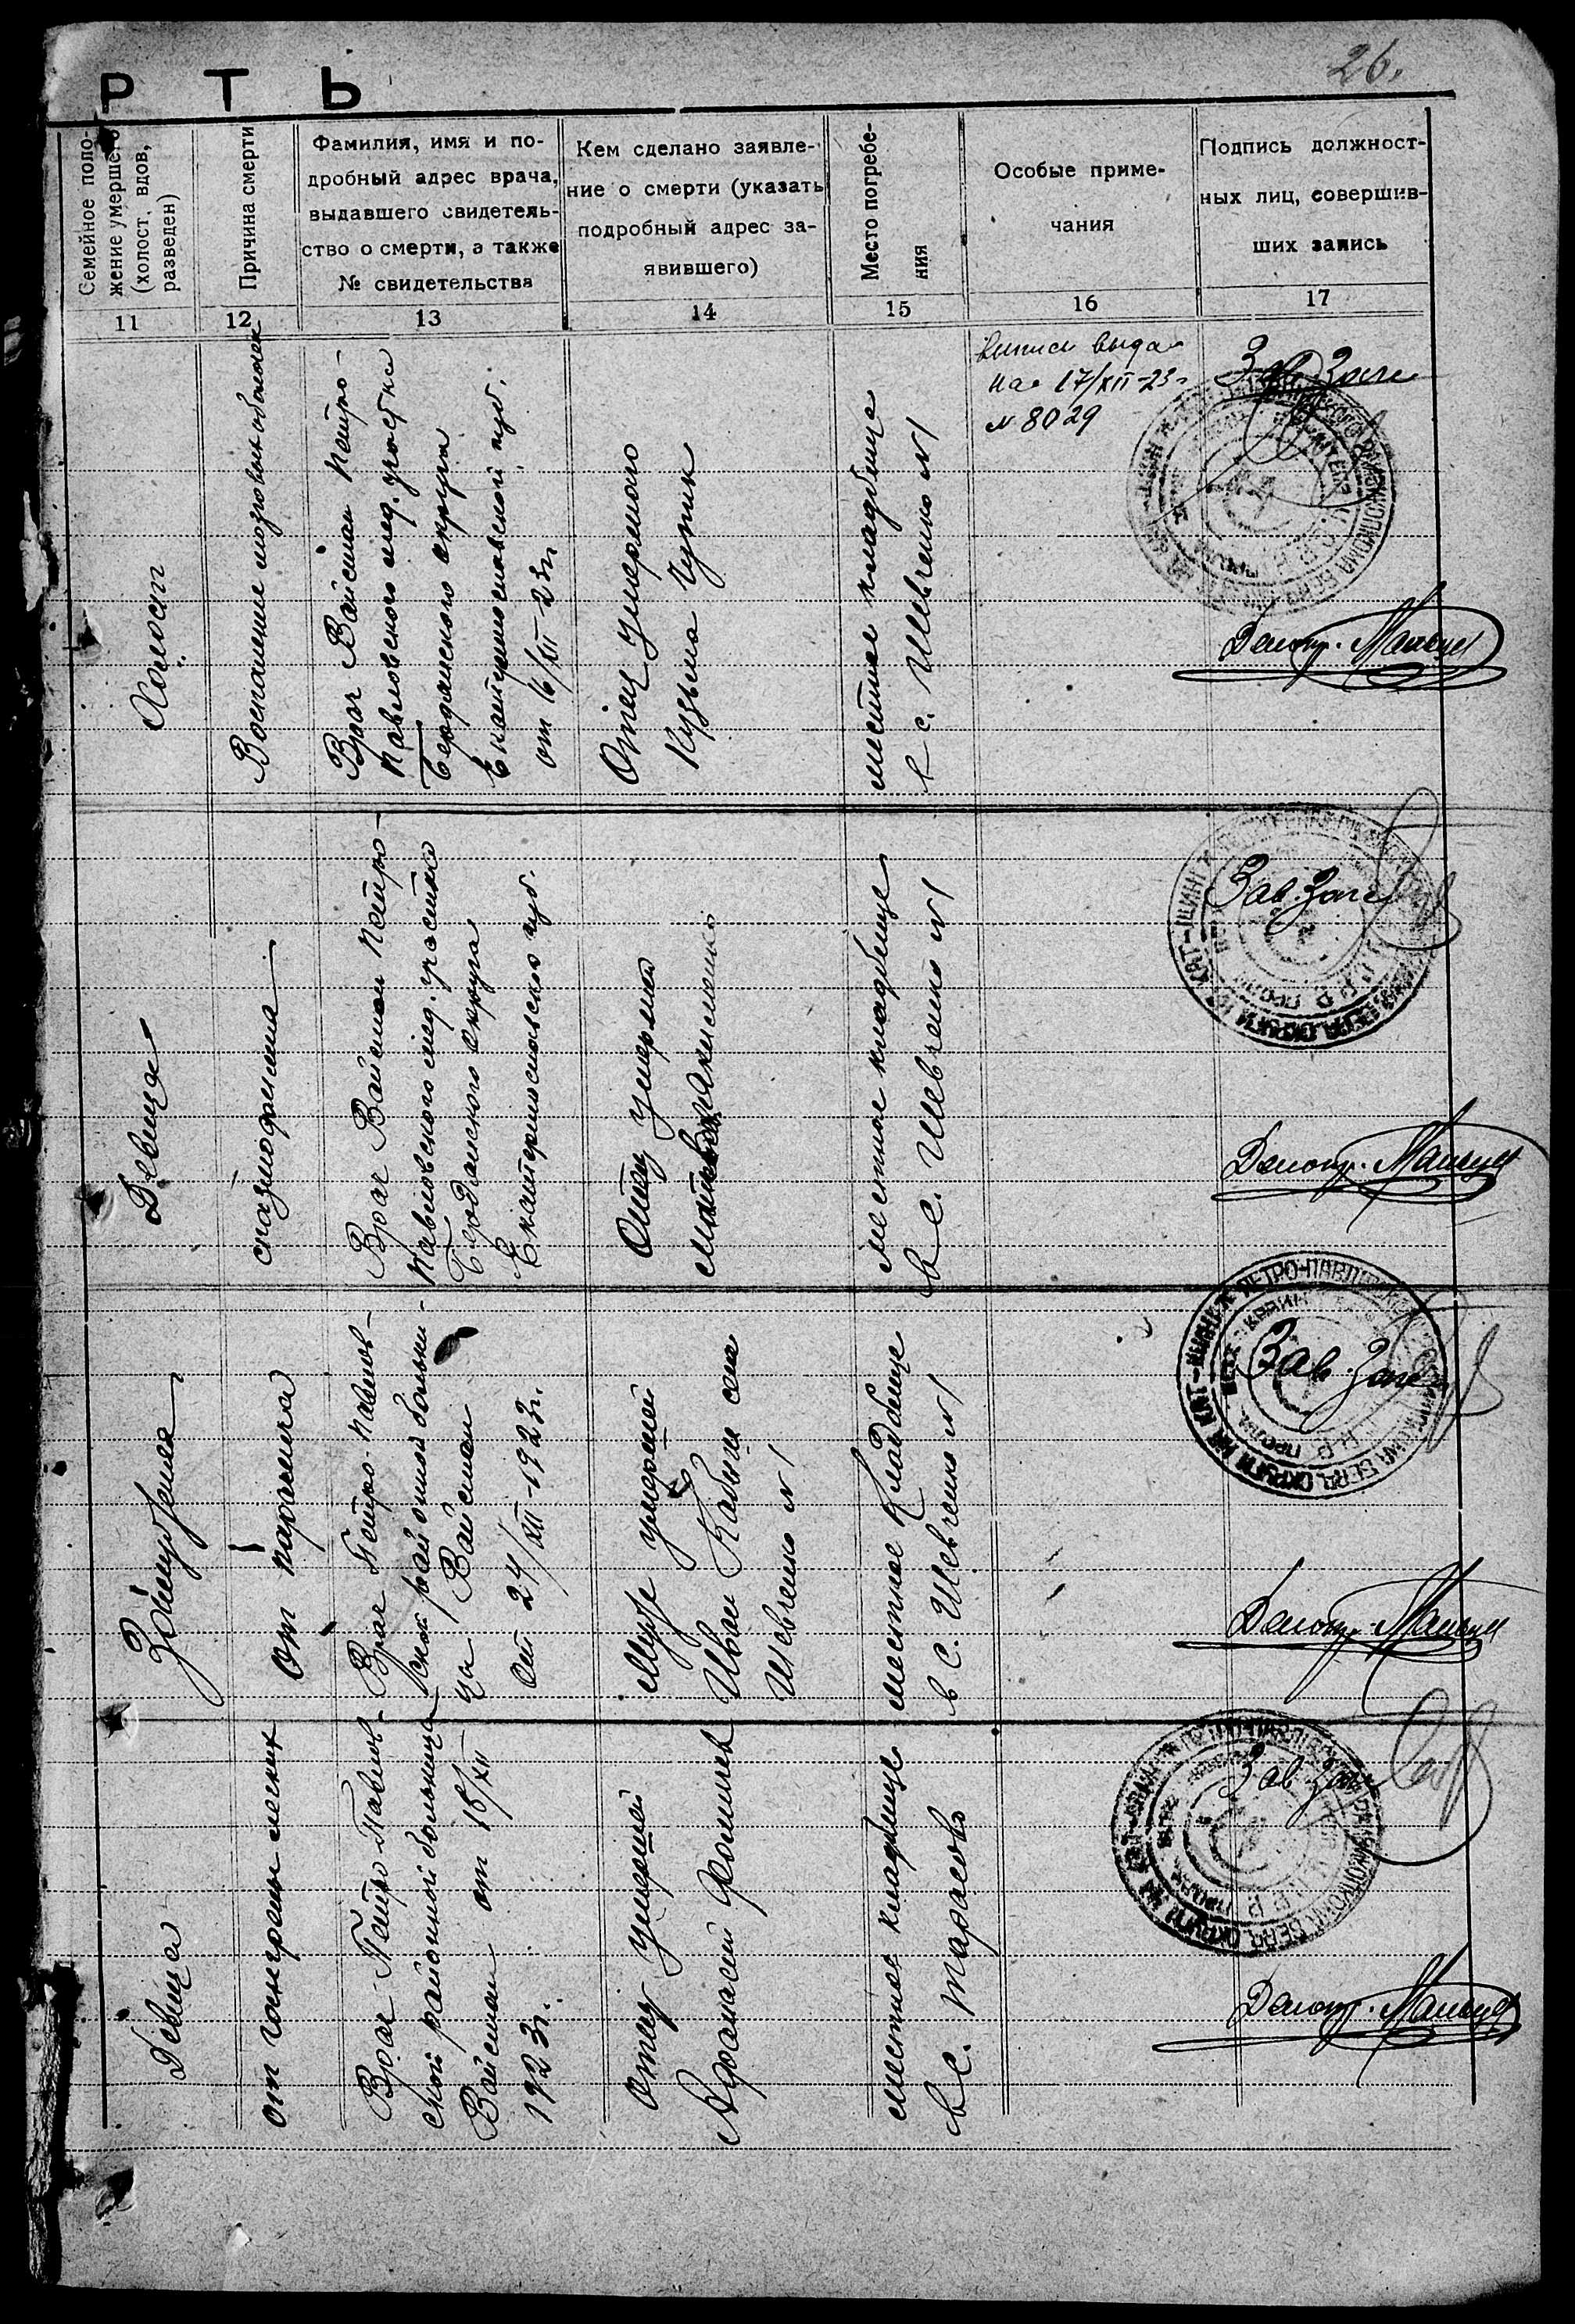 26.
РТЬ
Семейное поло-
жение умершего
(холост, вдов,
разведен)
Причина смерти
Фамилия, имя и по-
дробный адрес врача,
выдавшего свидетель-
ство о смерти, а также
№ свидетельства
Кем сделано заявле-
ние о смерти (указать
подробный адрес за-
явившего)
Место погребе-
ния
Особые приме-
чания
Подпись должност-
ных лиц, совершив-
ших запись
11
12
13
14
15
16
17
Холост
Воспаление мозговых оболочек
Врач Вайсман Петро-
Павловского мед. участка
Бердянского округа
Екатеринославской губ.
от 16/XII-23г.
Отец умершого
Кузьма Чуприн
местное кладбище
в с. Шевченко №1
выпись выда
на 17/XII-23г
№ 8029
Зав. Загс
Делопр.
Девица
спазмофилия
Врач Вайсман Петро-
Павловского мед. участка
Бердянского округа
Екатеринославской губ.
Отец умершой
местное кладбище
в с. Шевченко №1
Зав. Загс
Делопр.
Замужняя
От паралича
Врач Петро-Павлов-
ской районной больни-
ца Вайсман
От 24/XII-1923г.
Муж умершей
Иван села
Шевченко №1
местное Кладбище
в с. Шевченко №1
Зав. Загс
Делопр.
Девица
от гангрены легких
Врач Петро-Павлов-
ской районной больница
Вайсман от 15/XII
1923г.
Отец умершей
Афанасий Фомичев
местное кладбище
в с. Тарасово
Зав. Загс
Делопр.